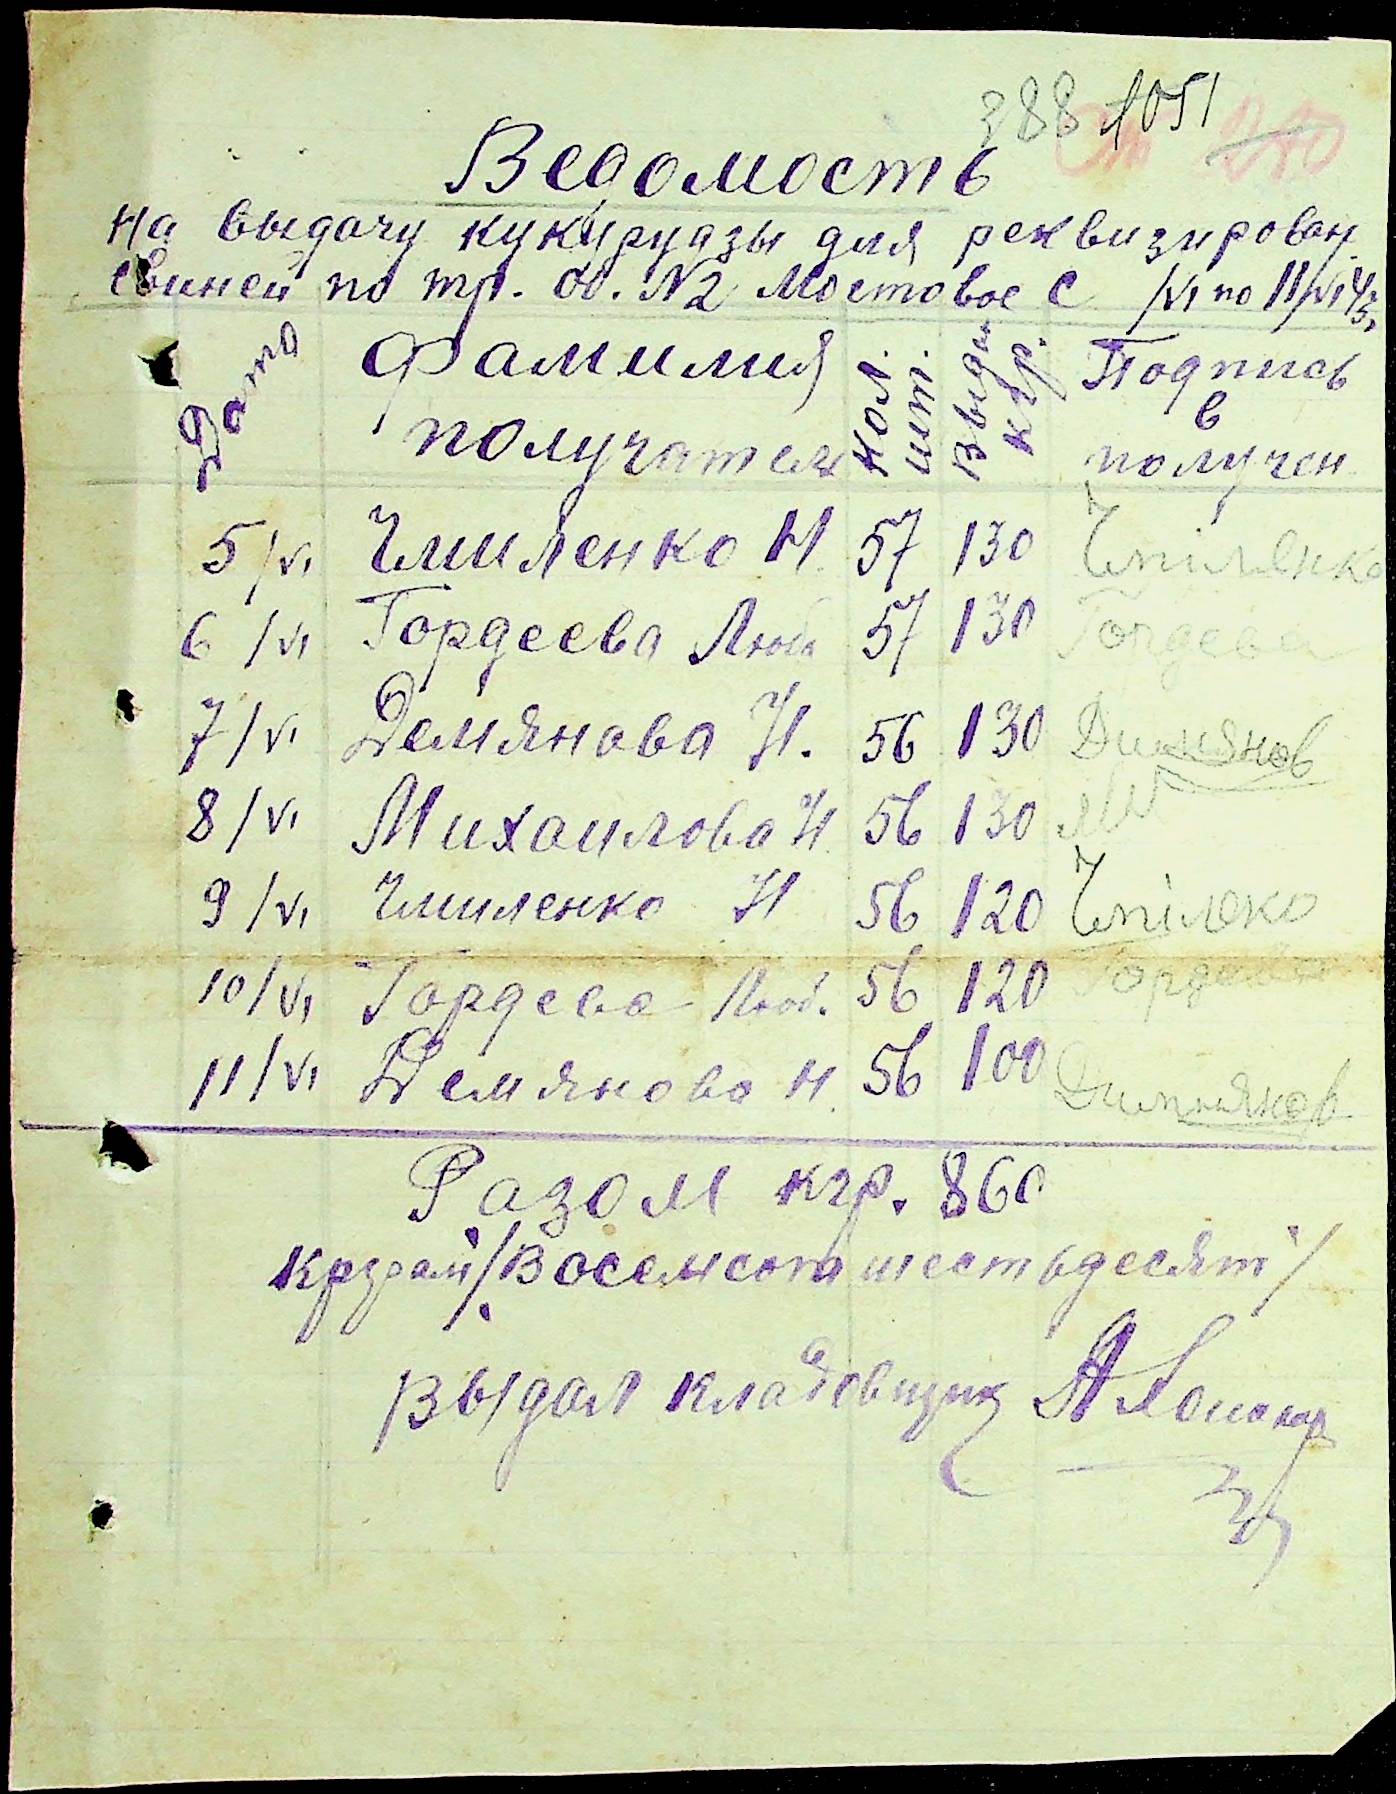 388 1051
270
Ведомость
на выдачу кукурудзы для реквизирован.
свиней по тр. об. №2 Мостовое с 1/VI по 11/VI 43
Дата Фамилия получателя Кол. шт. Выдан кгр. Подпись в получен
5/VI Чмиленко Н. 57 130 Чміленко
6/VI Гордеева Люба 57 130 Гордева
7/VI Демянова Н. 56 130 Димянов
8/VI Михаилова Н 56 130
9/VI Чмиленко Н 56 120 Чмілеко
10/VI Гордева Люб. 56 120 Гордева
11/VI Демянова Н. 56 100 Димянов
Разом кгр. 860
/Восемсот шестьдесят/
Выдал кладовщик